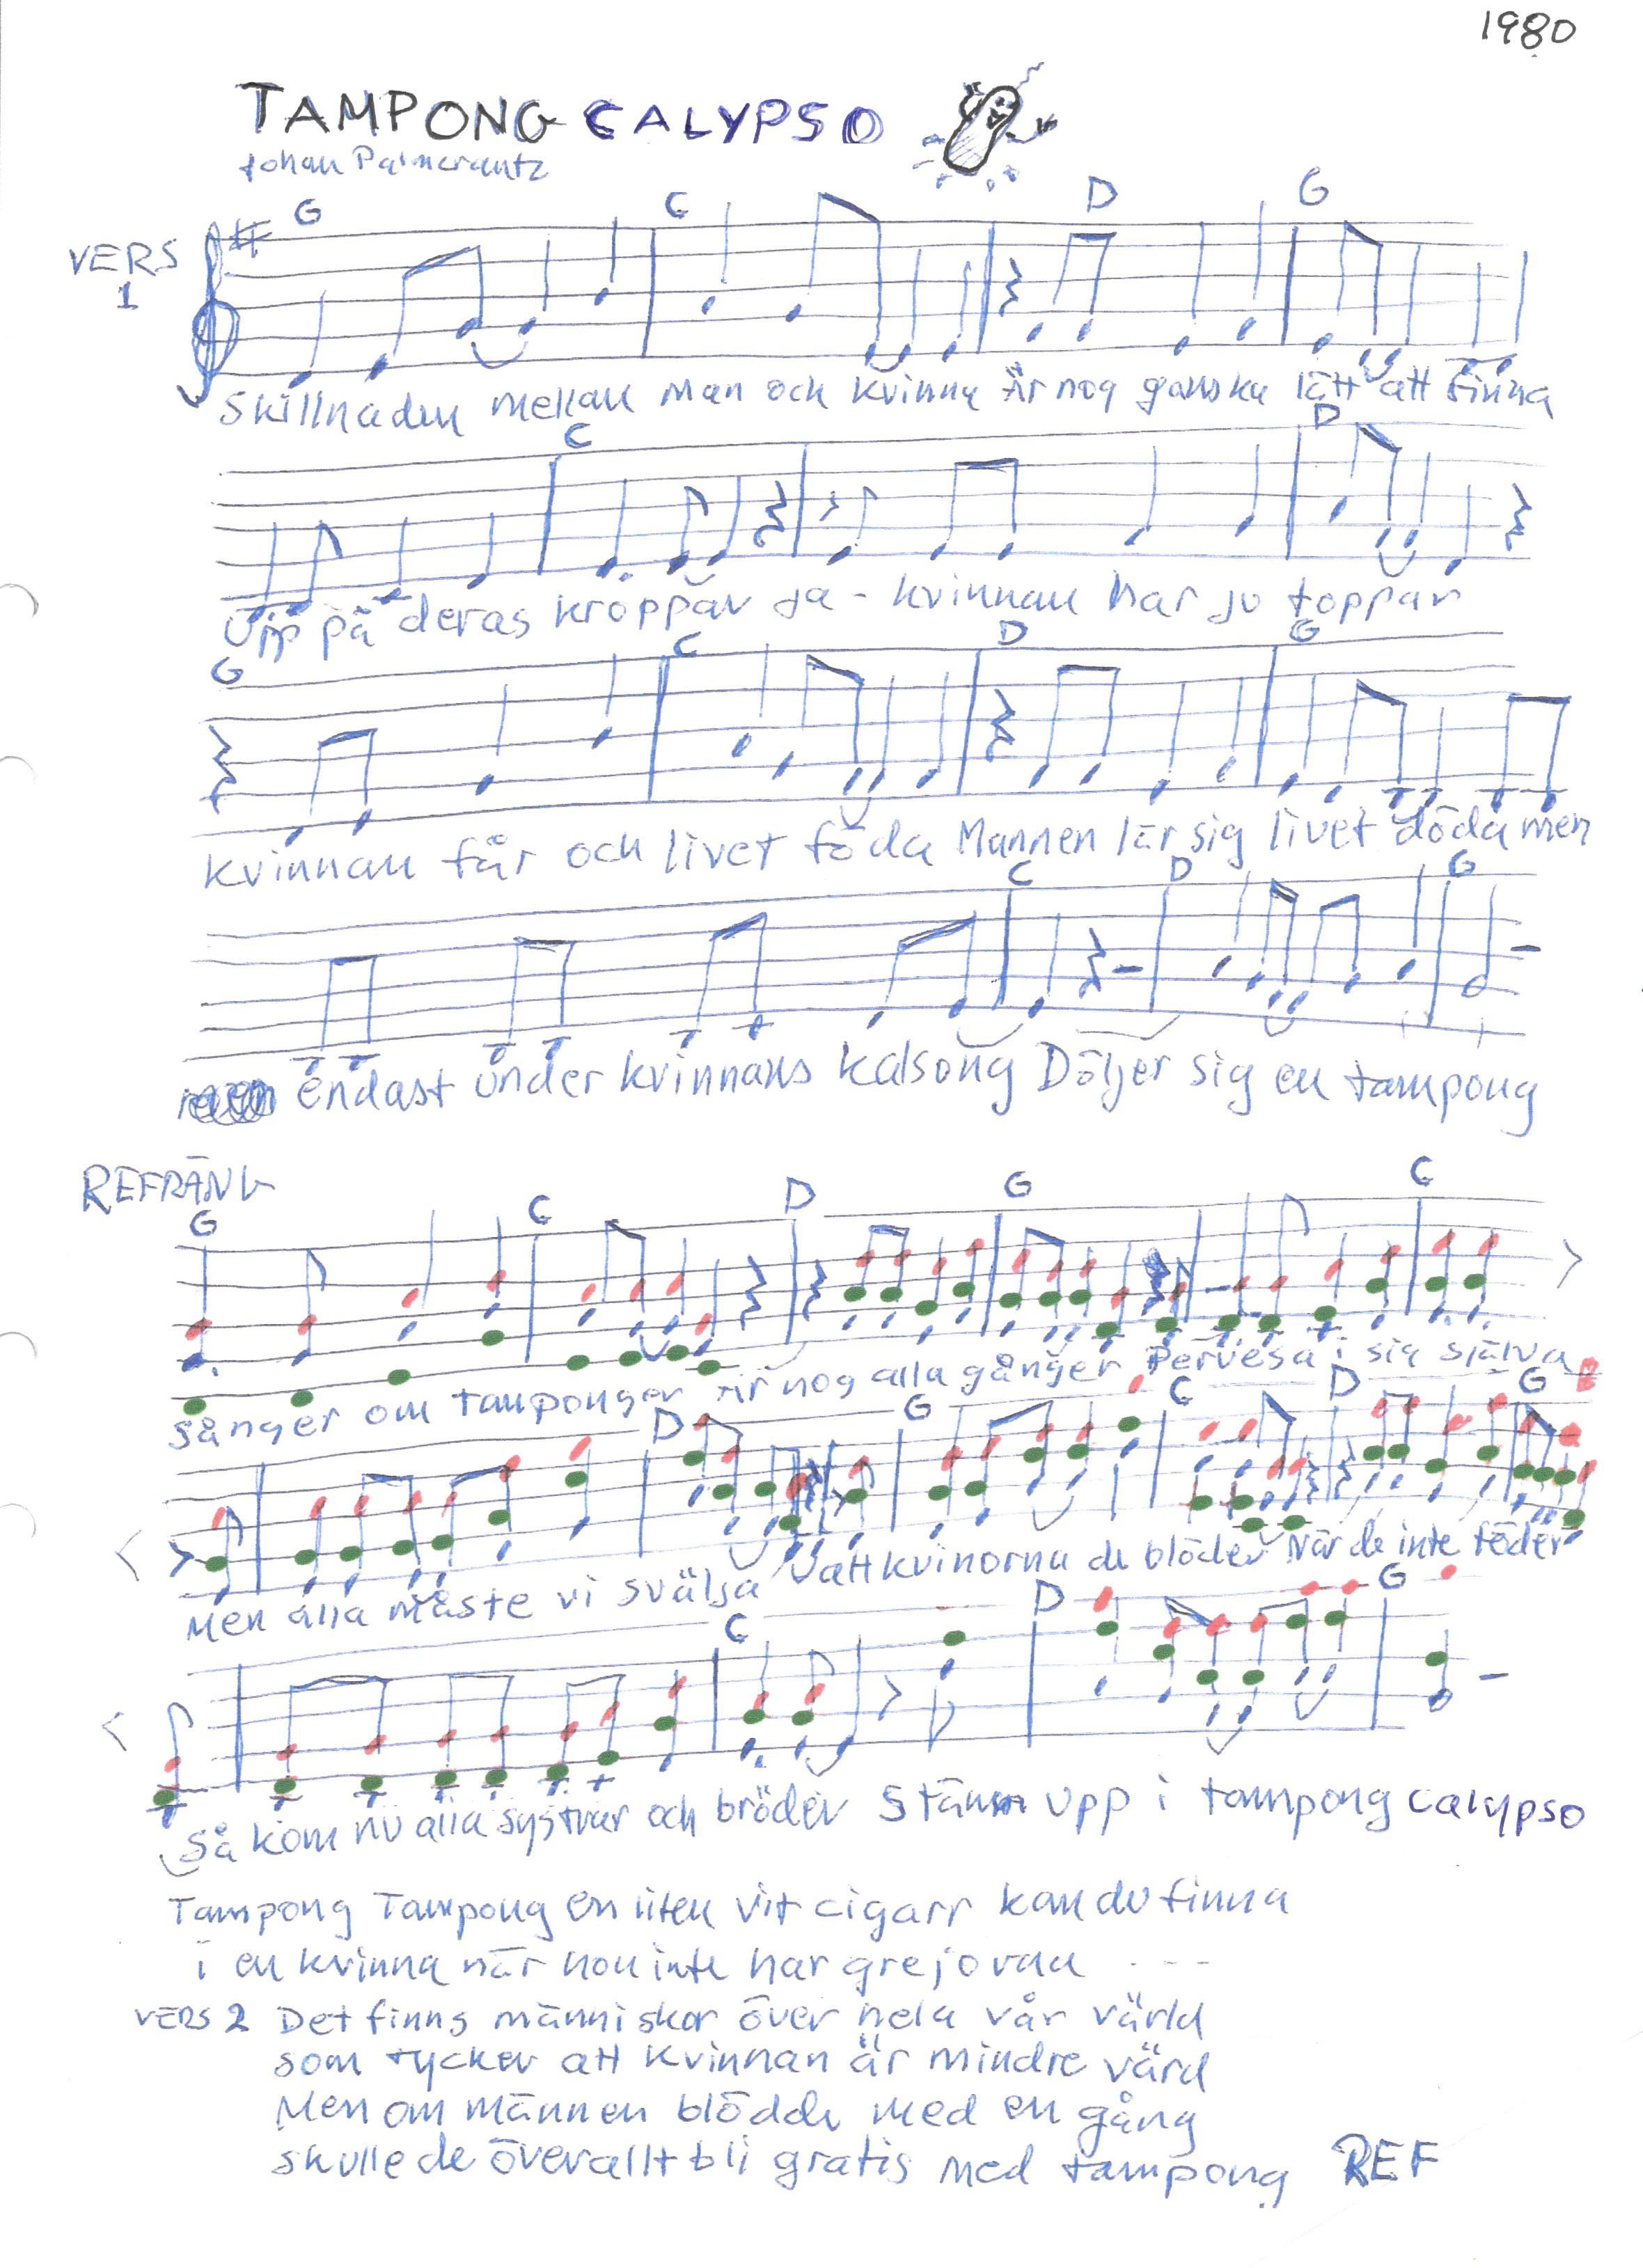 1980
TAMPONG CALYPSO
Johan Palmcrantz
G C D G
VERS
1
Skillnaden mellan man och kvinna Är nog ganska lätt att finna
C D
Upp på deras kroppar Ja - kvinnan har ju toppar
G C D G
Kvinnan får och livet föda Mannen lär sig livet döda men
C D G
endast under kvinnans kalsong Döljer sig en tampong
REFRÄNG
G C D G C
Sånger om tamponger Är nog alla gånger Pervesa i sig själva
D G C D G
Men alla måste vi svälja att kvinorna de blöder När de inte föder
C D G
Så kom nu alla systrar och bröder Stäm upp i tampong calypso
Tampong Tampong en liten vit cigarr kan du finna
i en kvinna när hon inte har grej ovan - - -
VERS 2 Det finns människor över hela vår värld
som tycker att kvinnan är mindre värd
Men om männen blödde med en gång
skulle de överallt bli gratis med tampong REF